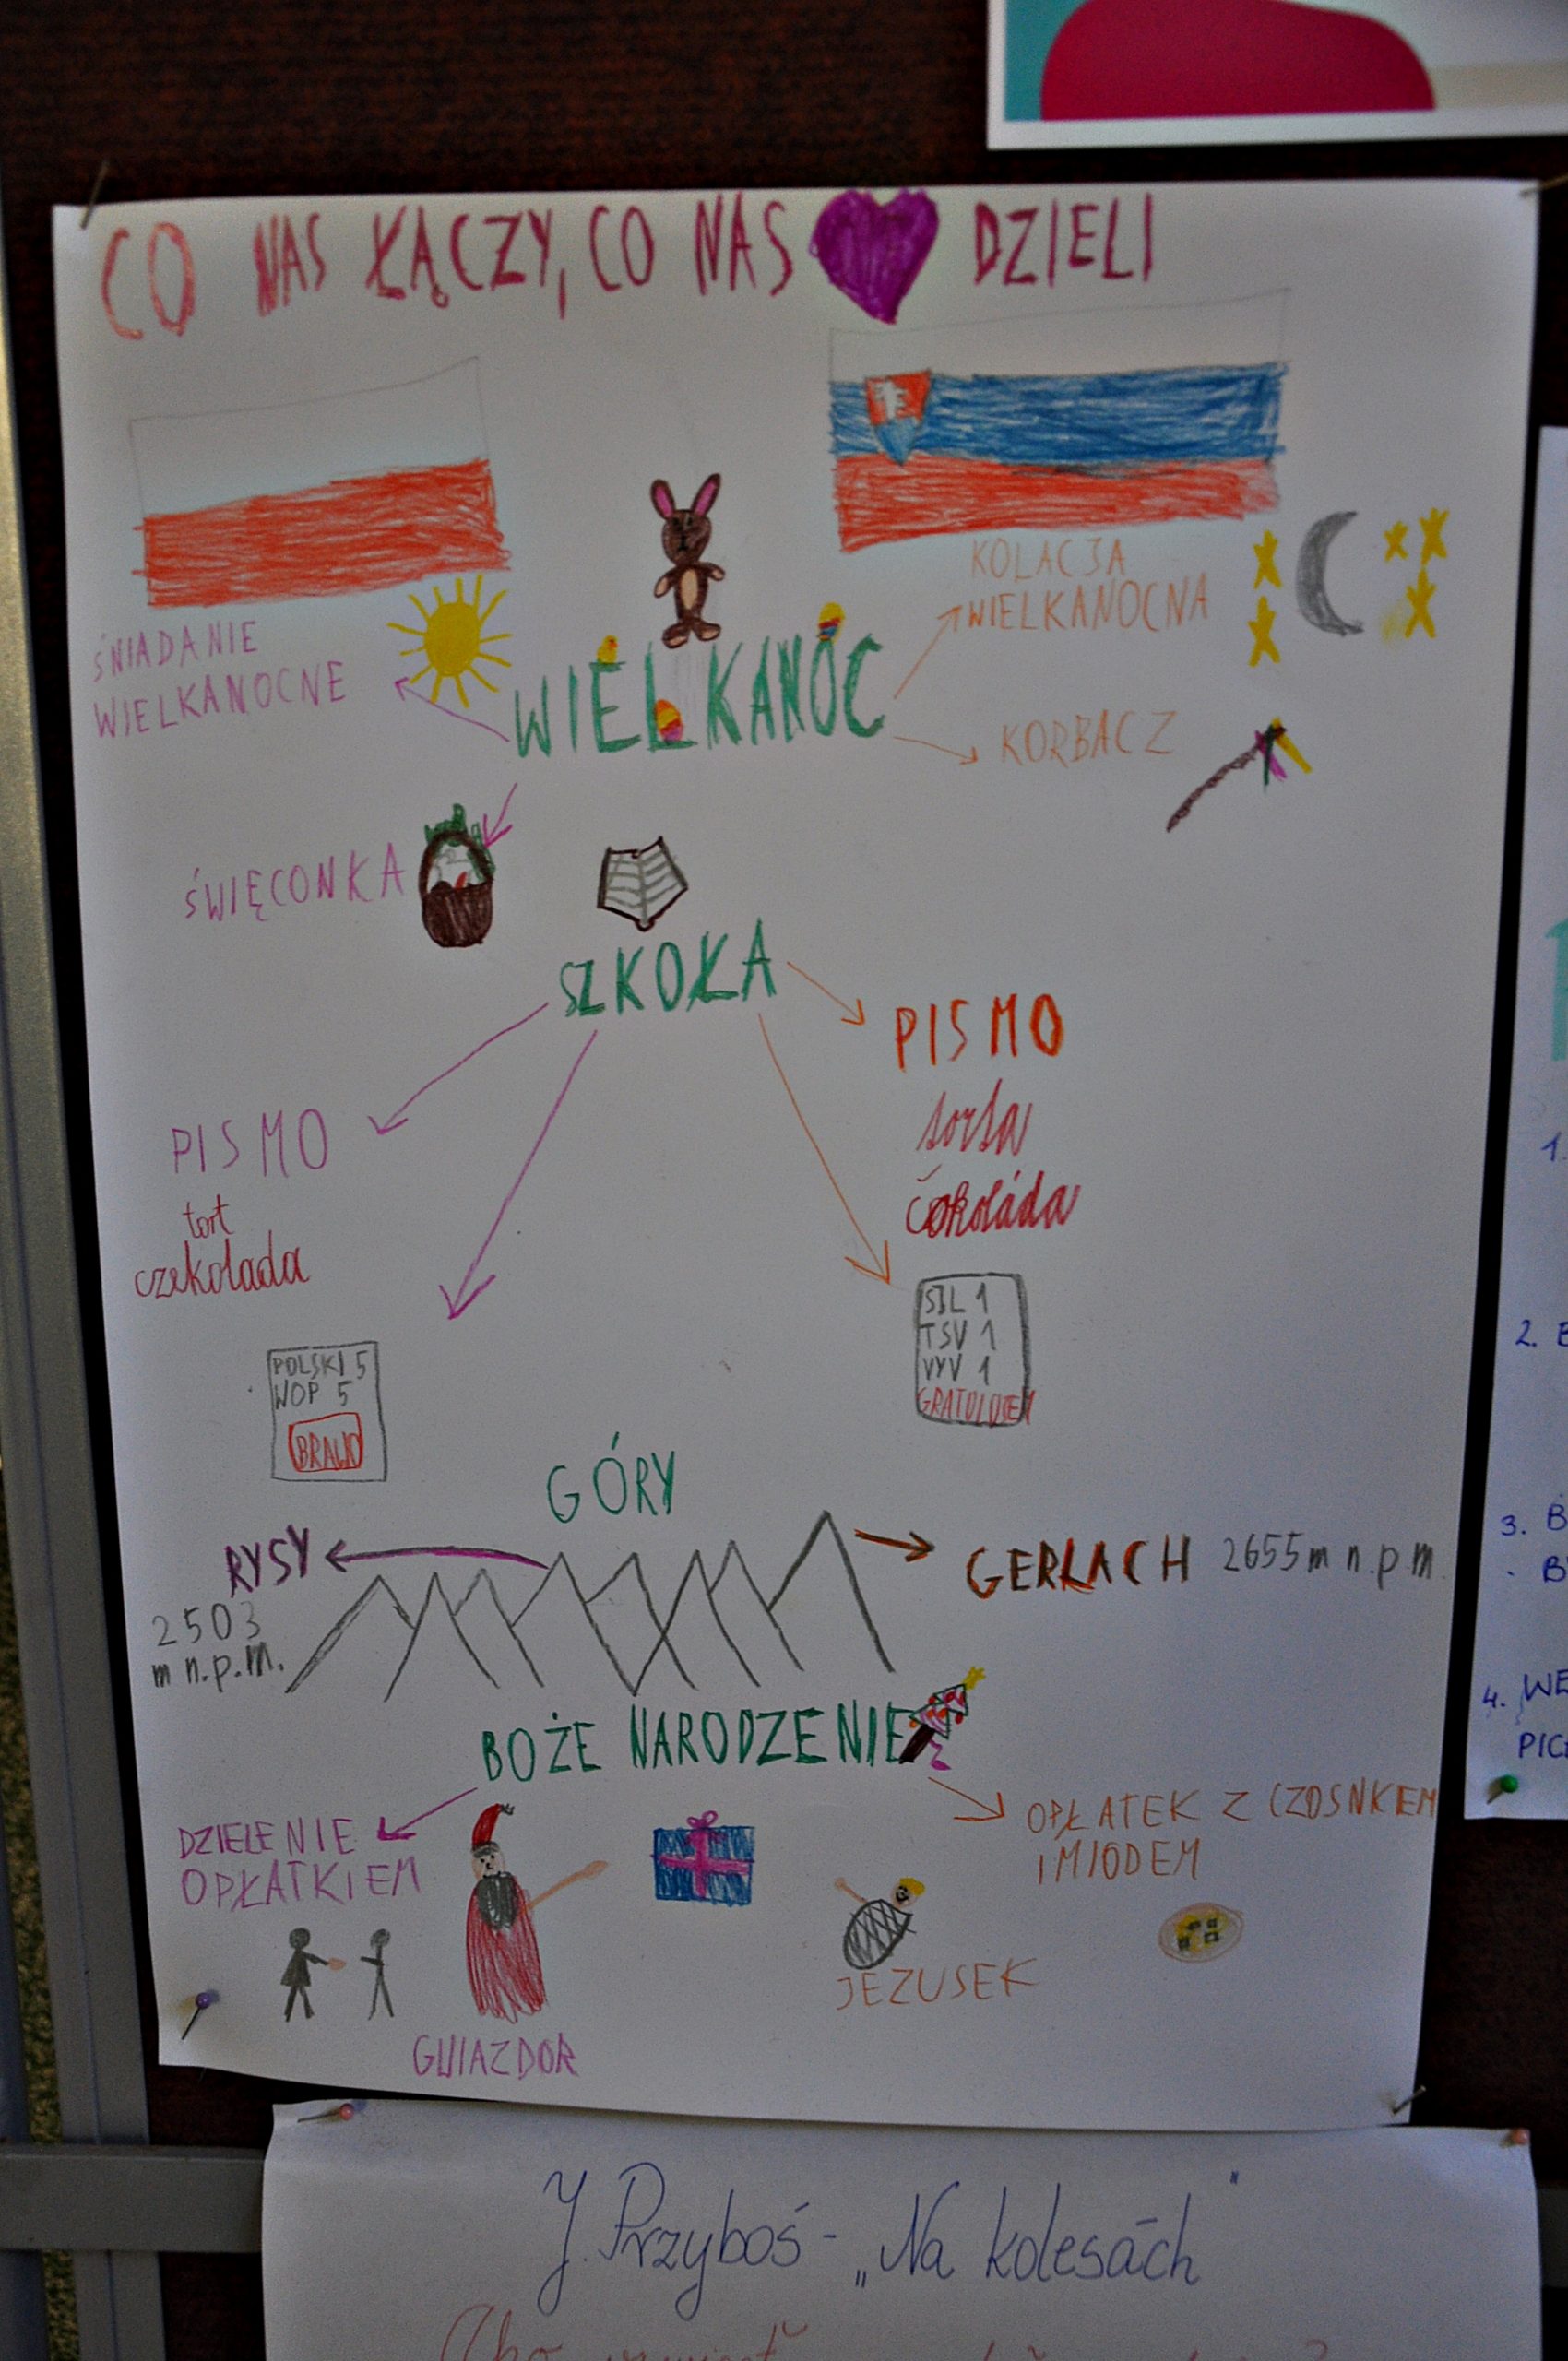 CO NAS ŁĄCZY, CO NAS DZIELI
KOLACJA
WIELKANOCNA
ŚNIADANIE
WIELKANOCNE
WIELKANOC
KORBACZ
ŚWIĘCONKA
SZKOŁA
PISMO
torta
čokoláda
PISMO
tort
czekolada
SJL 1
TSV 1
VYV 1
POLSKI 5
WOP 5
BRAWO
GÓRY
RYSY
2503
m n.p.m.
GERŁACH 2655 m n.p.m.
BOŻE NARODZENIE
DZIELENIE
OPŁATKIEM
OPŁATEK Z CZOSNKIEM
I MIODEM
JEZUSEK
GWIAZDOR
J. Przyboś - „Na kolesách"
1.
2.
3. B
- B
4. WE
PIC